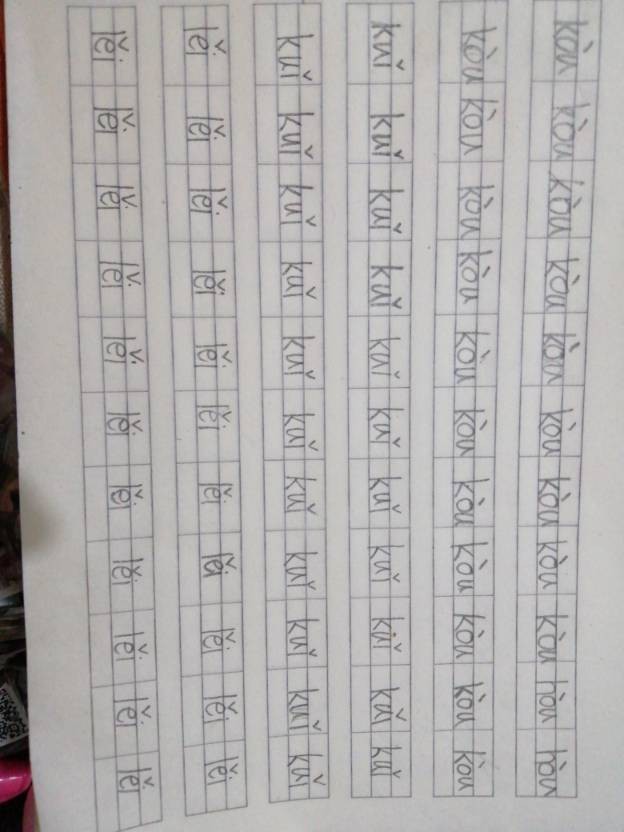 kòu kòu kòu kòu kòu kòu kòu kòu kòu hòu hòu
kòu kòu kòu kòu kòu kòu kòu kòu kòu kòu kòu
kuǐ kuǐ kuǐ kuǐ kuǐ kuǐ kuǐ kuǐ kuǐ kuǐ kuǐ
kuǐ kuǐ kuǐ kuǐ kuǐ kuǐ kuǐ kuǐ kuǐ kuǐ kuǐ
lěi lěi lěi lěi lěi lěi lěi lěi lěi lěi lěi
lěi lěi lěi lěi lěi lěi lěi lěi lěi lěi lěi